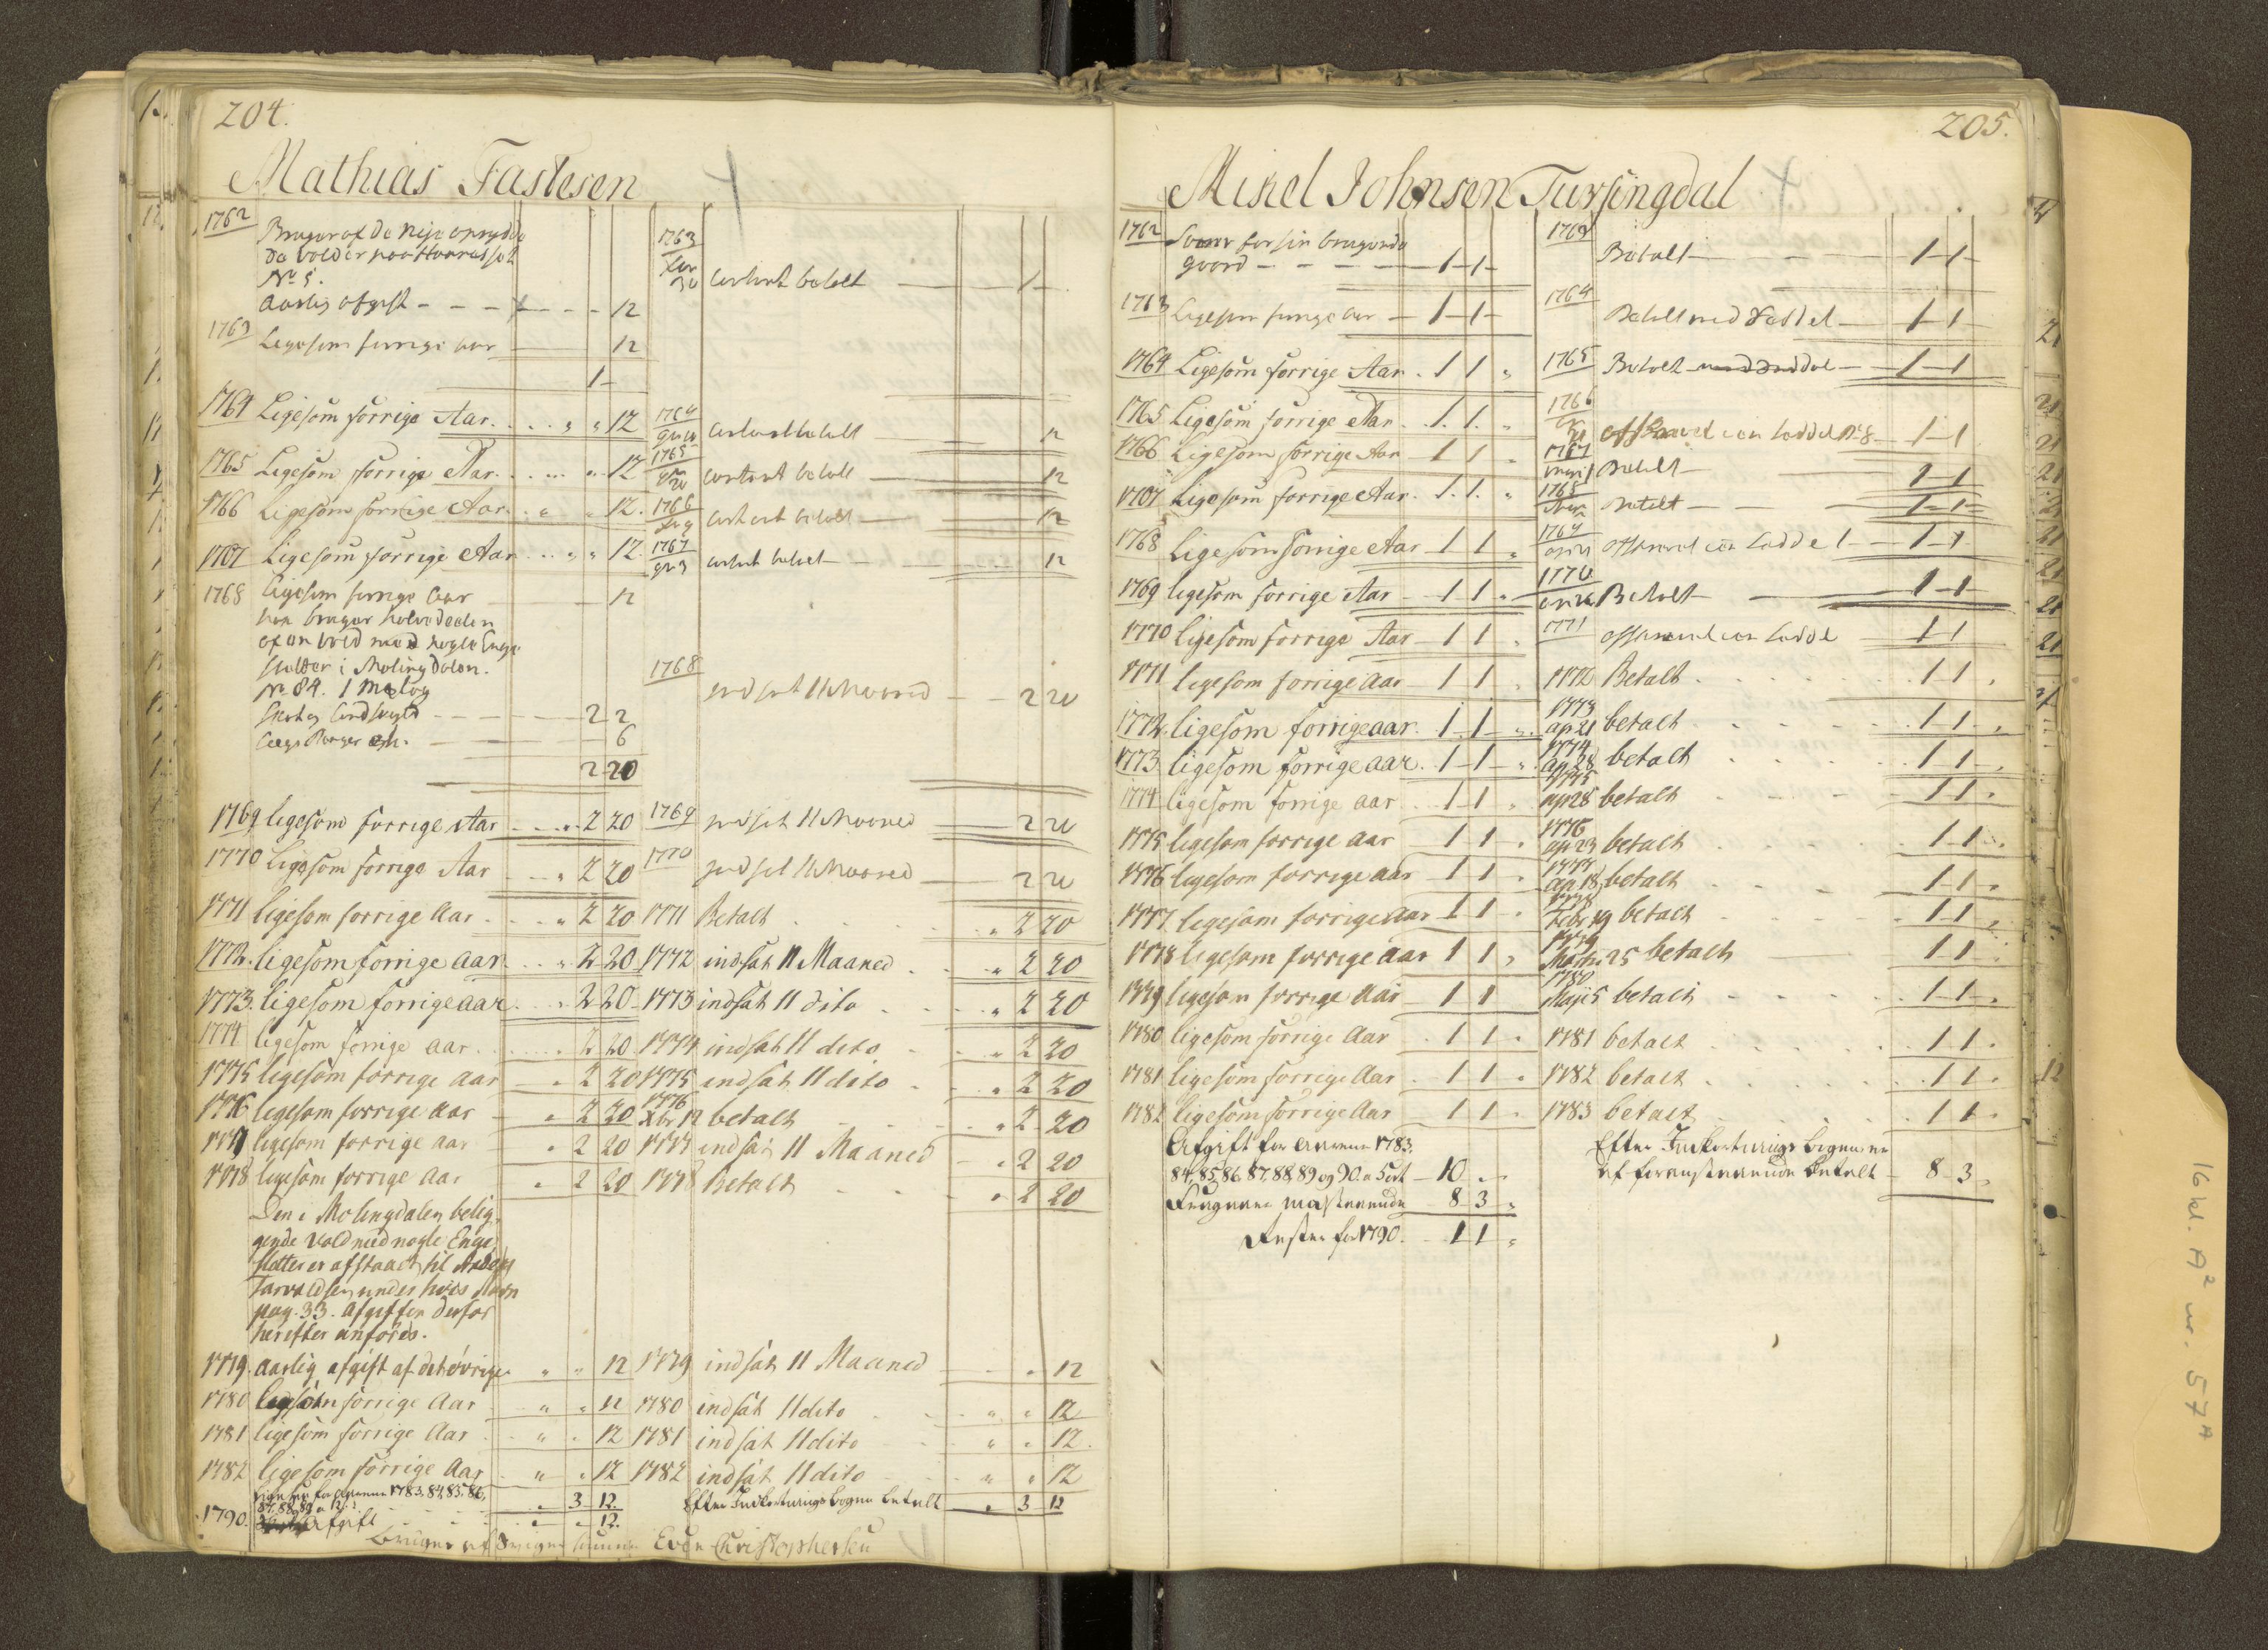 204.
Mathias Fastesen
1762 Bruger af de nÿe oprydde
No 5.
Aarlig afgift - - - - - - 12
1763 Ligesom forrige aar 12
1 -
1764 Ligesom forrige Aar. . . . " " 12
1765 Ligesom forrige Aar. . . . " 12
1766 Ligesom forrige Aar. " " 12.
1767 Ligesom forrige Aar . . " " 12.
1768 Ligesom forrige Aar 12
han bruger halvedeelen
af en vold med nogle Enge
sletter i Molingdalen.
No 84. 1 Mælog
Skat og Landskyld - - - 2 2
6
2 20
1769 ligesom forrige Aar . . . " 2 20
1770 Ligesom forrige Aar . . " 2 20
1771 ligesom forrige Aar . . . " 2 20
1772. ligesom forrige aar . . " 2 20
1773. ligesom forrige aar . . . 2 20
1774 ligesom forrige aar . . . . 2 20
1775 ligesom forrige Aar " 2 20
1776 ligesom forrige Aar " 2 20
1777 ligesom forrige aar " 2 20
1778 ligesom forrige Aar " 2 20
Den i Molingdalen belig-
gende Vold med nogle Enge-
sletter er afstaaet til Anders
Tarvaldsen under hvis Navn
pag. 33. afgiften derfor
herefter anføres.
1779. aarlig afgift af det øvrige " " 12
1780 ligesom forrige Aar " " 12
1781 ligesom forrige Aar " " 12
1782 ligesom forrige Aar " " 12
Ligesom for Aarene 1783, 84, 85, 86,
87, 88, 89 a 12 " 3 12.
1790. Afgift " " 12.
1763
contant betalt 1 -
1764 contant betalt 12
1765 contant betalt 12
1766 contant betalt 12
1767 contant betalt 12
1768
indsat 11 Maaned 2 20
1769 indsat 11 Maaned 2 20
1770 indsat 11 Maaned 2 20
1771 Betalt " 2 20
1772 indsat 11 Maaned " 2 20
1773 indsat 11 dito " 2 20
1774 indsat 11 dito " 2 20
1775 indsat 11 dito " 2 20
1776
Xbr 12 betalt " 2 20
1777 indsat 11 Maaned " 2 20
1778 Betalt " 2 20
1779 indsat 11 Maaned " 12
1780 indsat 11 dito " " 12
1781 indsat 11 dito " " 12.
1782 indsat 11 dito " " 12
Efter Indkortnings bogen betalt " 3 12
Even Christophersen
205.
Mikel Johnsen Tursingdal
1762 Svarer for sin brugende
gaard - - - - 1 - 1 -
1763 Ligesom forrige aar - 1 - 1 -
1764 Ligesom forrige Aar . 1 1 "
1765 Ligesom forrige Aar . 1. 1. "
1766 Ligesom forrige Aar 1 1 "
1767 Ligesom forrige Aar . 1. 1. "
1768 Ligesom forrige Aar 1 1 "
1769 ligesom forrige Aar 1 1 "
1770 ligesom forrige Aar 1 1 "
1771 ligesom forrige Aar 1 1 "
1772. ligesom forrige aar. 1 1 "
1773 ligesom forrige aar. 1 1 "
1774 ligesom forrige aar 1 1 "
1775 ligesom forrige aar 1 1 "
1776 ligesom forrige aar 1 1 "
1777 ligesom forrige Aar 1 1 "
1778 ligesom forrige Aar 1 1 "
1779 ligesom forrige Aar 1 1
1780 ligesom forrige Aar 1 1 "
1781 ligesom forrige Aar 1 1 "
1782 ligesom forrige Aar 1 1 "
Afgift for Aarene 1783,
84, 85, 86, 87, 88, 89 og 90. 10 "
8 3 "
Rester for 1790. 1 1 "
1763
Betalt - - - - 1 - 1 -
1764
Betalt med Seddel 1 - 1 -
1765 Betalt 1 - 1
1766
afskrevet een Seddel No 8 1 - 1
1767
Betalt 1 - 1
1768
Betalt 1 - 1 -
1769
afskrevet een Seddel 1 - 1
1770
Betalt 1 - 1
1771 afskrevet een Seddel 1 1
1772 Betalt . 1 1 "
1773
ap 21 betalt 1 1 "
1774
ap 28 betalt 1 1 "
1775
ap 28 betalt 1 1 "
1776
ap 23 betalt 1 1 "
1777
ap 18 betalt 1 1 "
1778
Febr 19 betalt 1 1 "
1779
Mart. 25 betalt 1 1 "
1780
Maji 5 betalt 1 1 "
1781 betalt 1 1 "
1782 betalt 1 1 "
1783 betalt 1 1 "
Efter Indkortnings bogen er
af foranstaaende betalt 8 3 "
16 kl. A² nr. 57ᴬ